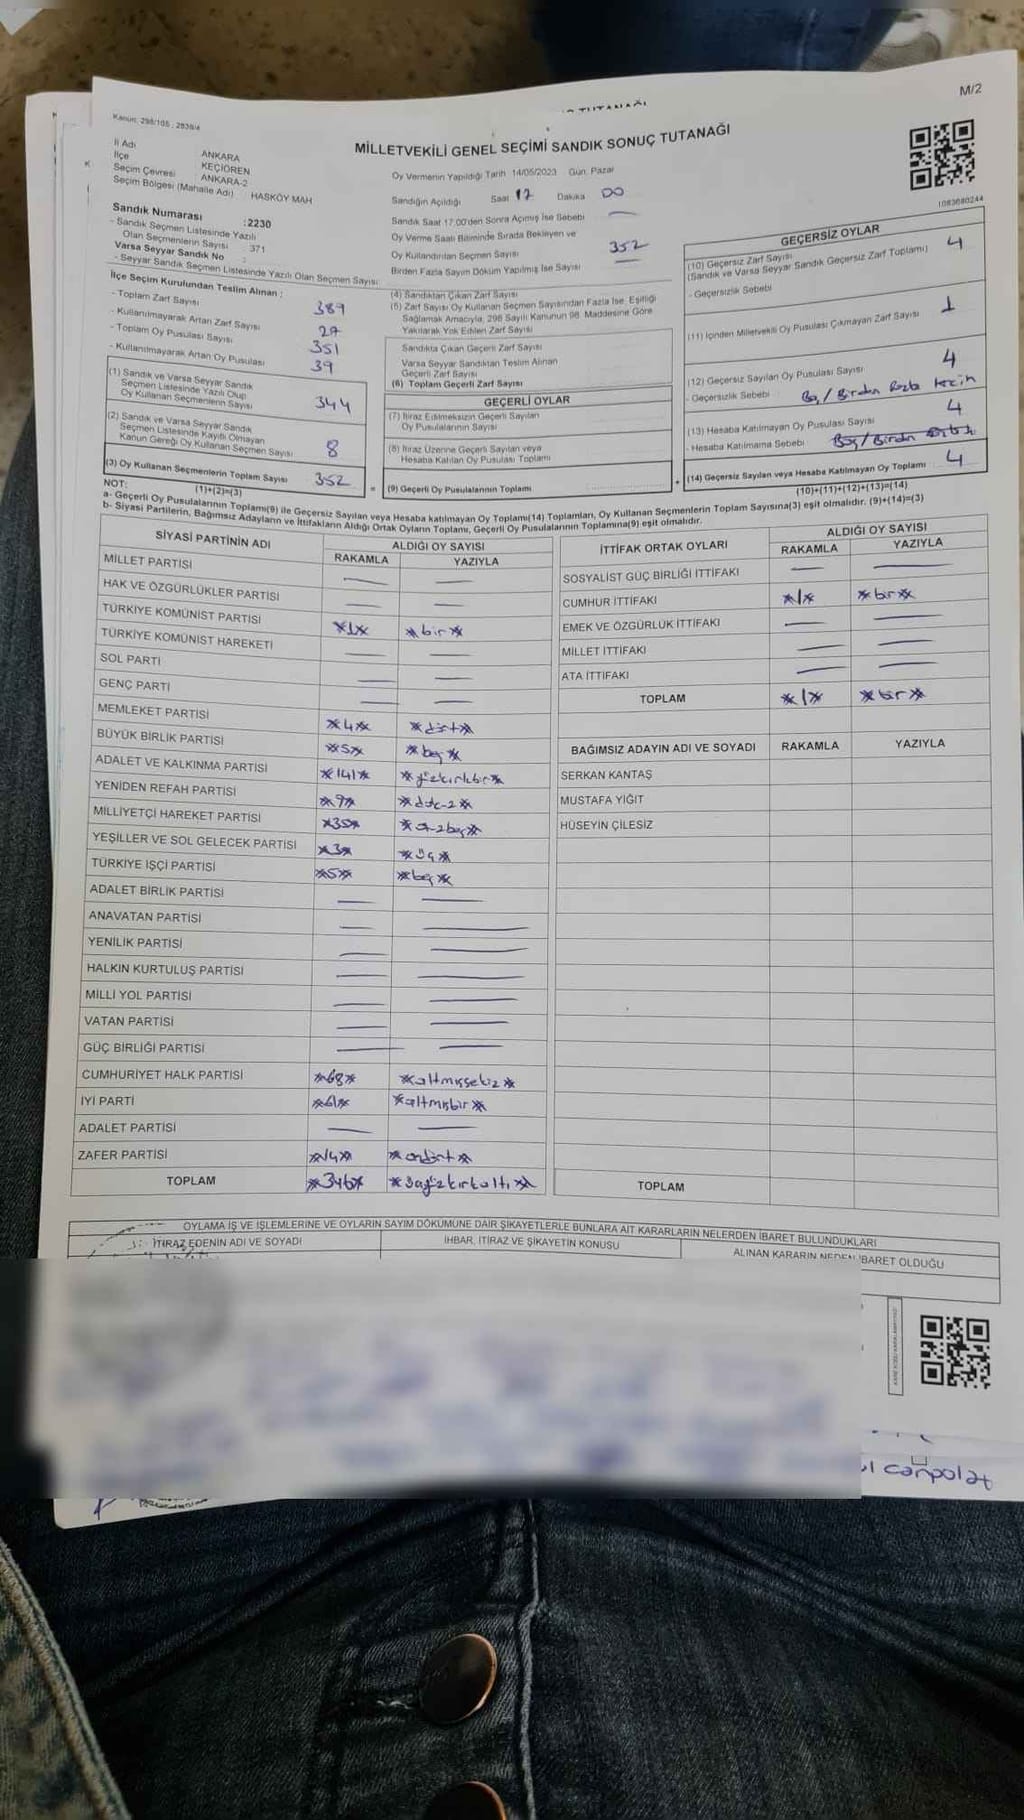 M/2
Kanun: 298/105 , 2839/4
MİLLETVEKİLİ GENEL SEÇİMİ SANDIK SONUÇ TUTANAĞI
İl Adı ANKARA
İlçe KEÇİÖREN
Seçim Çevresi ANKARA-2
Seçim Bölgesi (Mahalle Adı) : HASKÖY MAH
Oy Vermenin Yapıldığı Tarih 14/05/2023 Gün: Pazar
Sandığın Açıldığı Saat 17 Dakika 00
Sandık Saat 17.00'den Sonra Açımış İse Sebebi
Oy Verme Saati Bitiminde Sırada Bekleyen ve
Oy Kullandırılan Seçmen Sayısı 352
Birden Fazla Sayım Döküm Yapılmış İse Sayısı
1083680244
Sandık Numarası : 2230
- Sandık Seçmen Listesinde Yazılı
Olan Seçmenlerin Sayısı : 371
Varsa Seyyar Sandık No :
- Seyyar Sandık Seçmen Listesinde Yazılı Olan Seçmen Sayısı:
İlçe Seçim Kurulundan Teslim Alınan :
- Toplam Zarf Sayısı 389
- Kullanılmayarak Artan Zarf Sayısı 27
- Toplam Oy Pusulası Sayısı 351
- Kullanılmayarak Artan Oy Pusulası 39
(1) Sandık ve Varsa Seyyar Sandık
Seçmen Listesinde Yazılı Olup
Oy Kullanan Seçmenlerin Sayısı 344
(2) Sandık ve Varsa Seyyar Sandık
Seçmen Listesinde Kayıtlı Olmayan
Kanun Gereği Oy Kullanan Seçmen Sayısı 8
(3) Oy Kullanan Seçmenlerin Toplam Sayısı 352
(1)+(2)=(3)
(4) Sandıktan Çıkan Zarf Sayısı
(5) Zarf Sayısı Oy Kullanan Seçmen Sayısından Fazla İse, Eşitliği
Sağlamak Amacıyla, 298 Sayılı Kanunun 98. Maddesine Göre
Yakılarak Yok Edilen Zarf Sayısı
Sandıkta Çıkan Geçerli Zarf Sayısı
Varsa Seyyar Sandıktan Teslim Alınan
Geçerli Zarf Sayısı
(6) Toplam Geçerli Zarf Sayısı
GEÇERLİ OYLAR
(7) İtiraz Edilmeksizin Geçerli Sayılan
Oy Pusulalarının Sayısı
(8) İtiraz Üzerine Geçerli Sayılan veya
Hesaba Katılan Oy Pusulası Toplamı
= (9) Geçerli Oy Pusulalarının Toplamı +
GEÇERSİZ OYLAR
(10) Geçersiz Zarf Sayısı 4
(Sandık ve Varsa Seyyar Sandık Geçersiz Zarf Toplamı)
- Geçersizlik Sebebi
(11) İçinden Milletvekili Oy Pusulası Çıkmayan Zarf Sayısı 1
(12) Geçersiz Sayılan Oy Pusulası Sayısı 4
- Geçersizlik Sebebi Boş / Birden fazla tercih
(13) Hesaba Katılmayan Oy Pusulası Sayısı 4
- Hesaba Katılmama Sebebi Boş/Birden
(14) Geçersiz Sayılan veya Hesaba Katılmayan Oy Toplamı 4
(10)+(11)+(12)+(13)=(14)
NOT:
a- Geçerli Oy Pusulalarının Toplamı(9) ile Geçersiz Sayılan veya Hesaba katılmayan Oy Toplamı(14) Toplamları, Oy Kullanan Seçmenlerin Toplam Sayısına(3) eşit olmalıdır. (9)+(14)=(3)
b- Siyasi Partilerin, Bağımsız Adayların ve İttifakların Aldığı Ortak Oyların Toplamı, Geçerli Oy Pusulalarının Toplamına(9) eşit olmalıdır.
SİYASİ PARTİNİN ADI ALDIĞI OY SAYISI
RAKAMLA YAZIYLA
MİLLET PARTİSİ
HAK VE ÖZGÜRLÜKLER PARTİSİ
TÜRKİYE KOMÜNİST PARTİSİ *1* *bir*
TÜRKİYE KOMÜNİST HAREKETİ
SOL PARTİ
GENÇ PARTİ
MEMLEKET PARTİSİ *4* *dört*
BÜYÜK BİRLİK PARTİSİ *5* *beş*
ADALET VE KALKINMA PARTİSİ *141* *yüzkırkbir*
YENİDEN REFAH PARTİSİ *9* *dokuz*
MİLLİYETÇİ HAREKET PARTİSİ *35* *otuzbeş*
YEŞİLLER VE SOL GELECEK PARTİSİ *3* *üç*
TÜRKİYE İŞÇİ PARTİSİ *5* *beş*
ADALET BİRLİK PARTİSİ
ANAVATAN PARTİSİ
YENİLİK PARTİSİ
HALKIN KURTULUŞ PARTİSİ
MİLLİ YOL PARTİSİ
VATAN PARTİSİ
GÜÇ BİRLİĞİ PARTİSİ
CUMHURİYET HALK PARTİSİ *68* *altmışsekiz*
İYİ PARTİ *61* *altmışbir*
ADALET PARTİSİ
ZAFER PARTİSİ *14* *ondört*
TOPLAM *346* *üçyüzkırkaltı*
İTTİFAK ORTAK OYLARI ALDIĞI OY SAYISI
RAKAMLA YAZIYLA
SOSYALİST GÜÇ BİRLİĞİ İTTİFAKI
CUMHUR İTTİFAKI *1* *bir*
EMEK VE ÖZGÜRLÜK İTTİFAKI
MİLLET İTTİFAKI
ATA İTTİFAKI
TOPLAM *1* *bir*
BAĞIMSIZ ADAYIN ADI VE SOYADI RAKAMLA YAZIYLA
SERKAN KANTAŞ
MUSTAFA YİĞİT
HÜSEYİN ÇİLESİZ
TOPLAM
OYLAMA İŞ VE İŞLEMLERİNE VE OYLARIN SAYIM DÖKÜMÜNE DAİR ŞİKAYETLERLE BUNLARA AİT KARARLARIN NELERDEN İBARET BULUNDUKLARI
İTİRAZ EDENİN ADI VE SOYADI İHBAR, İTİRAZ VE ŞİKAYETİN KONUSU ALINAN KARARIN NEDEN İBARET OLDUĞU
canpolat